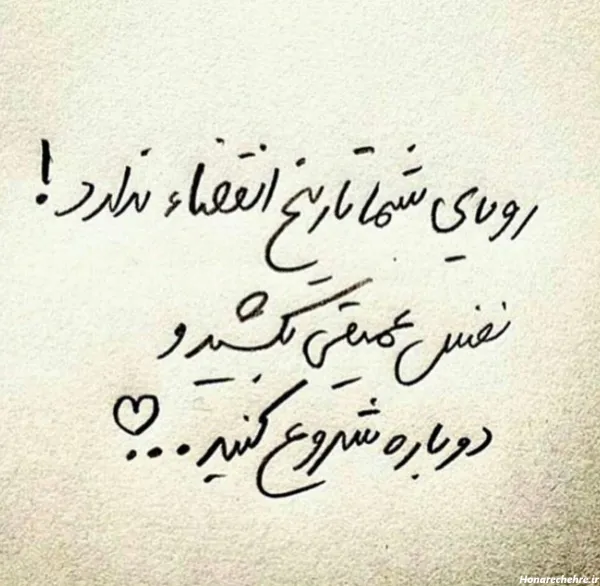 رویای شما تاریخ انقضاء ندارد!
نفس عمیقی بکشید و
دوباره شروع کنید...♡
Honarechehre.ir